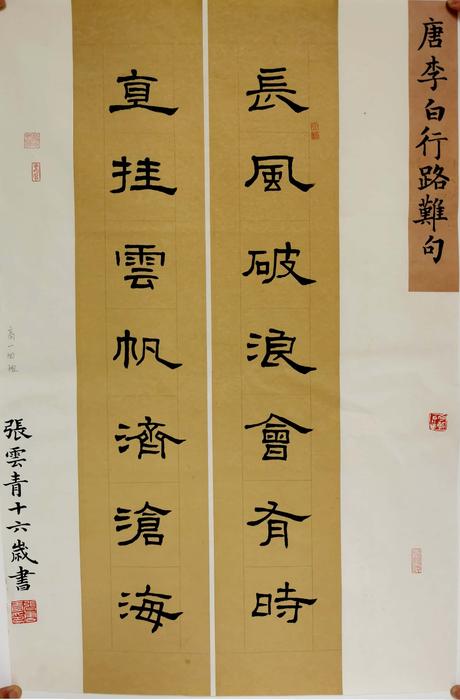 唐李白行路難句
長風破浪會有時
直挂雲帆濟滄海
張雲青十六歲書
高一四班